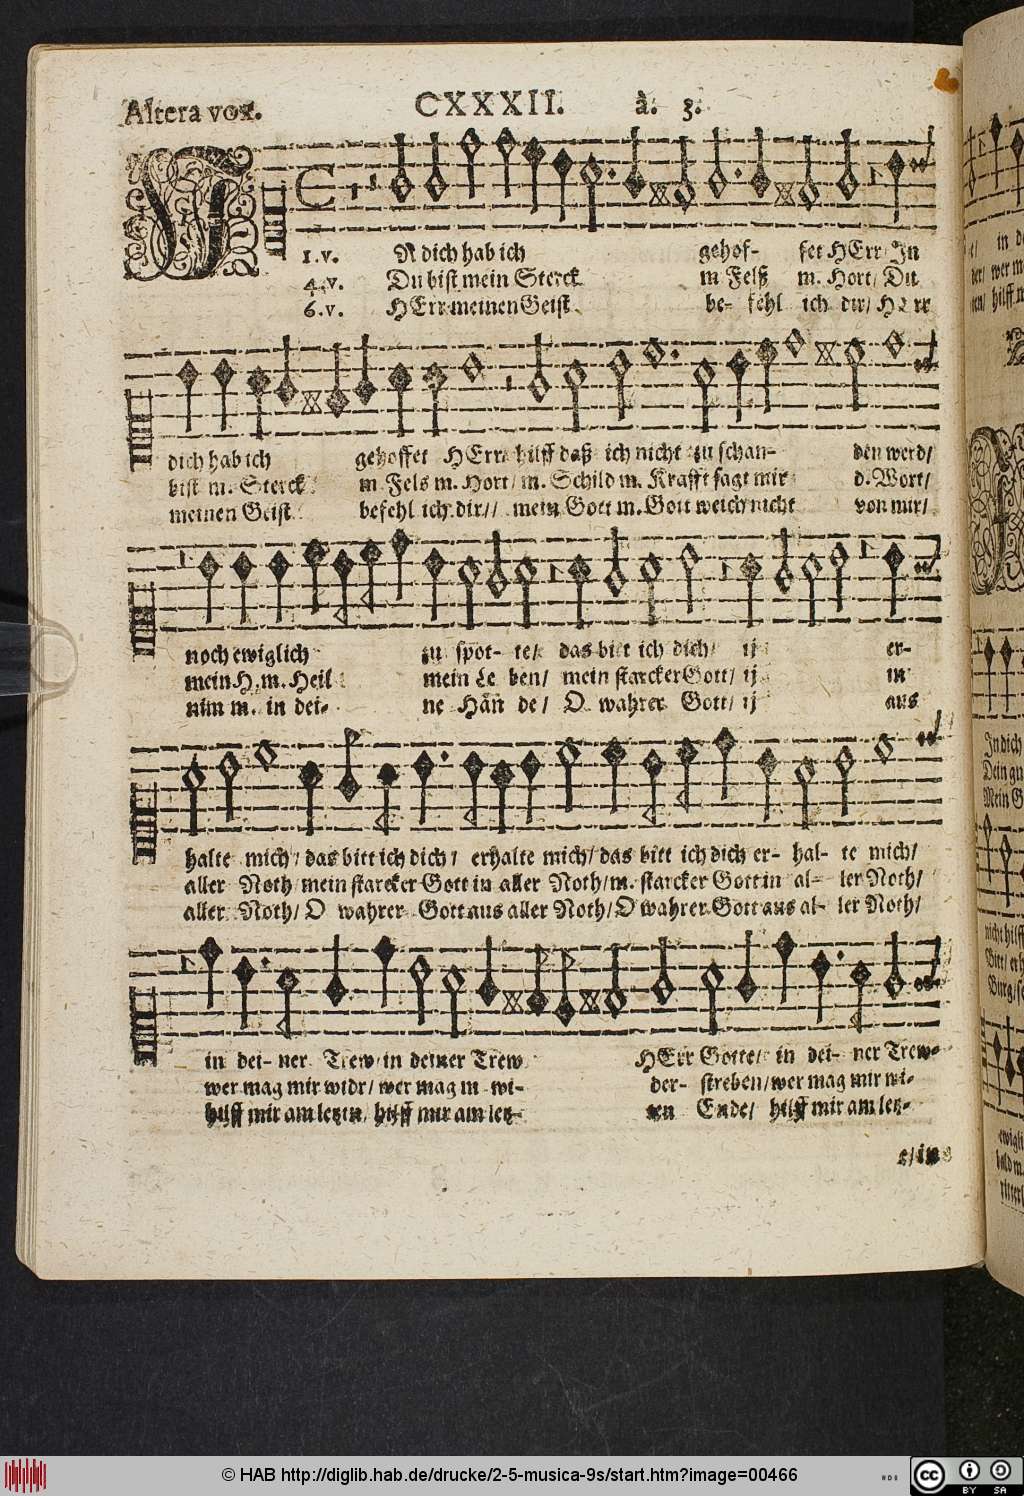 Altera vox. CXXXII. à. 3.
1.v. N dich hab ich gehof- fet HErr In
4.v. Du bist mein Sterck m Felß m. Hort/ Du
6.v. HErr meinen Geist be- fehl ich dir/ HErr
dich hab ich gehoffet HErr hilff daß ich nicht zu schan- den werd/
bist m. Sterck m Fels m. Hort/ m. Schild m. Krafft sagt mir d. Wort/
meinen Geist befehl ich dir// mein Gott m. Gott weich nicht von mir/
noch ewiglich zu spot- te/ das bitt ich dich/ ij er-
mein H. m. Heil mein Le ben/ mein starcker Gott/ ij in
nim m. in dei- ne Hän de/ O wahrer Gott/ ij aus
halte mich/ das bitt ich dich/ erhalte mich/ das bitt ich dich er- hal- te mich/
aller Noth mein starcker Gott in aller Noth/ m. starcker Gott in al- ler Noth/
aller Noth/ O wahrer Gott aus aller Noth/ O wahrer Gott aus al- ler Noth/
in dei- ner Trew/ in deiner Trew HErr Gotte/ in dei- ner Trew-
wer mag mir widr/ wer mag m wi- der- streben/ wer mag mir wi-
hilff mir am letztn/ hilff mir am letz- ten Ende/ hilff mir am letz-
in dich
Dein gn
Mein G
nicht hilff
© HAB http://diglib.hab.de/drucke/2-5-musica-9s/start.htm?image=00466
cc BY SA